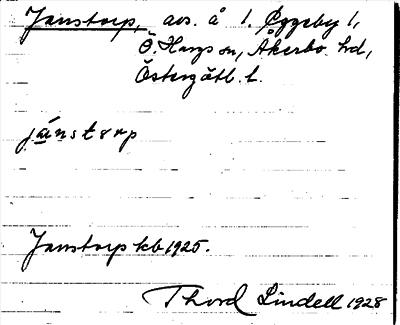 Janstorp, avs. å 1. Öggeby 1,
Ö. Harg sn, Åkerbo hd,
Östergötl. l.
jánstorp
Janstorp kb 1925.
Thord Lindell 1928